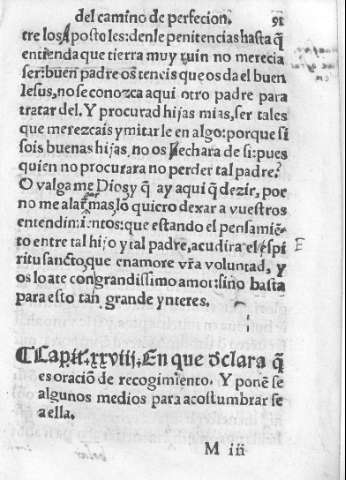 del camino de perfecion. 91
tre los Apostoles: denle penitencias hasta q̃
entienda que tierra muy ruin no merecia
ser: buen padre os teneis que os da el buen
Iesus, no se conozca aqui otro padre para
tratar del. Y procurad hijas mias, ser tales
que merezcais ymitarle en algo: porque si
sois buenas hijas no os echara de si: pues
quien no procurara no perder tal padre?
O valgame Dios y q̃ ay aqui q̃ dezir, por
no me alar mas lõ quiero dexar a vuestros
entendimientos: que estando el pensamiẽ-
to entre tal hijo y tal padre, acudira el espi
ritu sancto, que enamore vr̃a voluntad, y
os lo ate con grandissimo amor: sino basta
para esto tan grande ynteres.
E
¶ Capit. xxviij. En que d̃clara q̃
es oraciõ de recogimiento. Y ponẽ se
algunos medios para acostumbrar se
a ella.
M iij